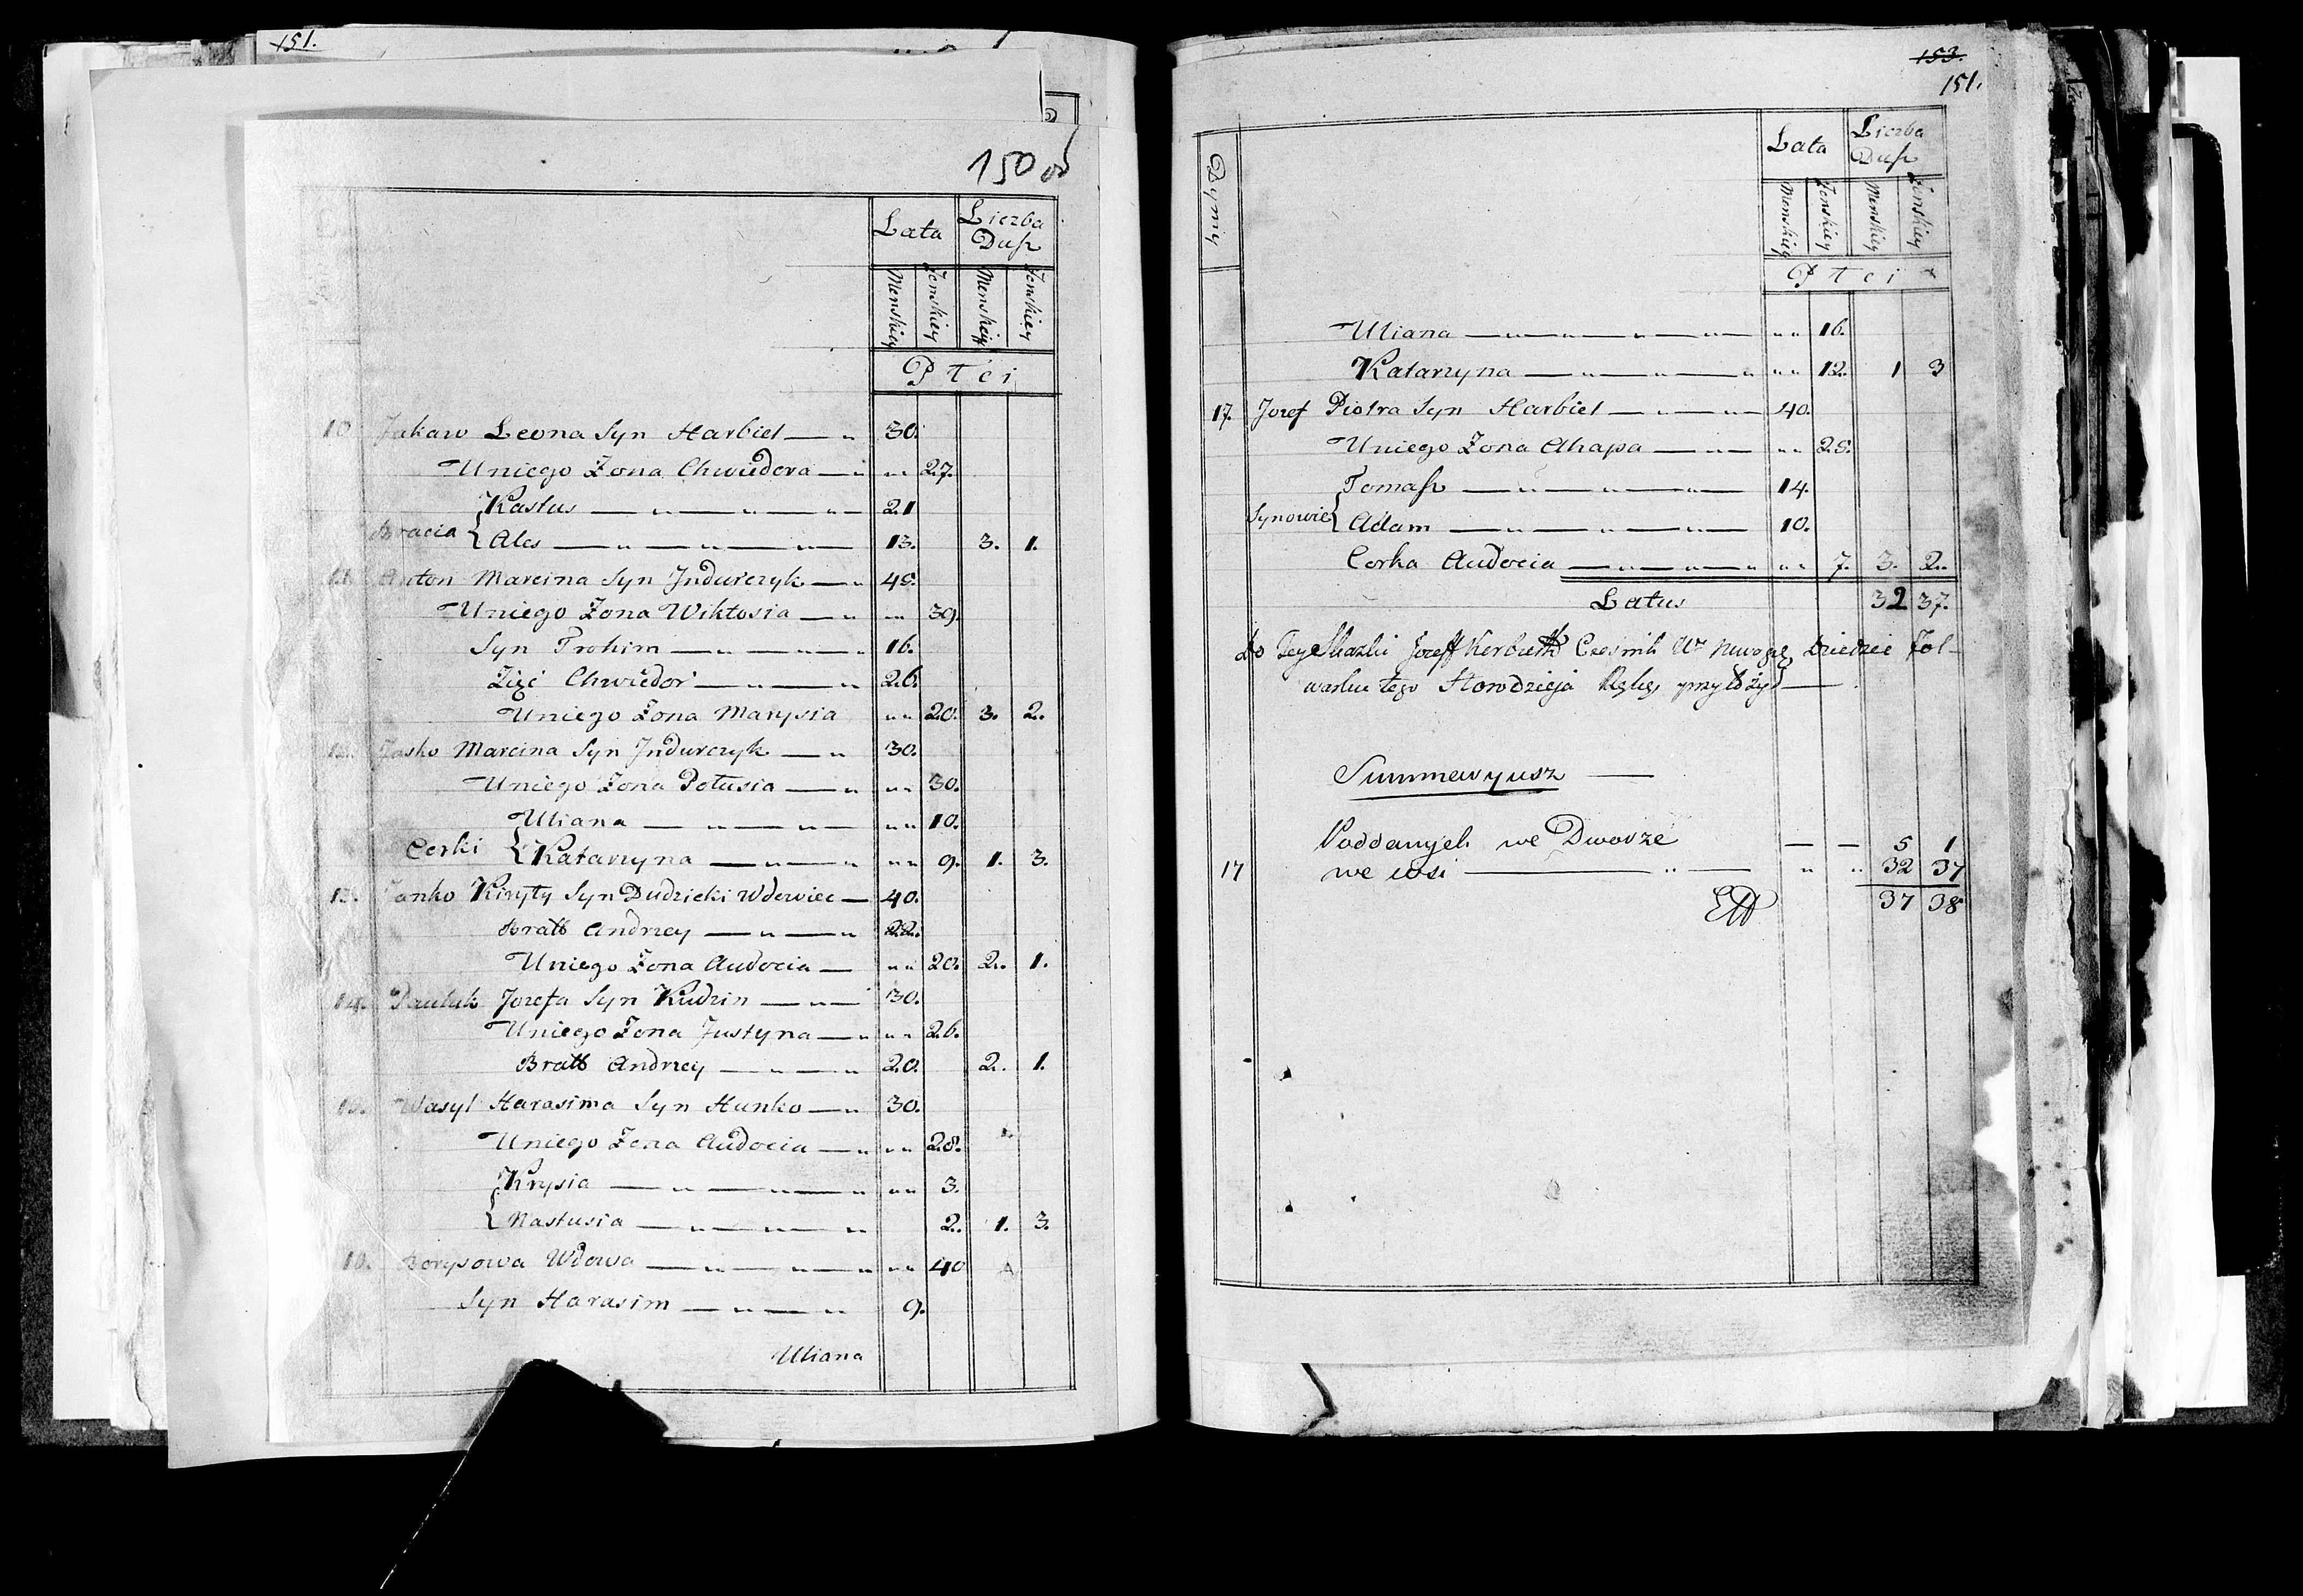 151.
150 об
Lata Liczba Dusz
Menskiey Zenskiey Menskiey Zenskiey
Płci
10 Jakaw Leona Syn Harbiel — „ 30.
Uniego Zona Chwiedora — „ „ „ 27.
Kastus — „ — „ — „ — 21
Bracia { Ales — „ — „ — „ — 13. 3. 1.
11. Anton Marcina Syn Jndurczyk — „ 45.
Uniego Zona Wiktosia — „ „ „ 39.
Syn Trohim — „ — „ — „ 16.
Zięć Chwiedor — „ — „ 26.
Uniego Zona Marysia „ „ 20. 3. 2.
12. Jasko Marcina Syn Jndurczyk — „ 30.
Uniego Zona Połusia — „ „ „ 30.
Uliana — „ — „ — „ „ 10.
Corki { Katarzyna — „ — „ „ „ 9. 1. 3.
13. Janko Kiryły Syn Dudzicki Wdowiec — 40.
Bratt Andrzey — „ — „ 22.
Uniego Zona Audocia — „ „ 20. 2. 1.
14. Pauluk Jozefa Syn Kudzin — „ — 30.
Uniego Zona Justyna — „ „ „ 26.
Bratt Andrzey — „ — „ 20. 2. 1.
15. Wasyl Harasima Syn Hunko — „ 30.
Uniego Zona Audocia — „ „ „ 28.
{ Krysia — „ — „ — „ „ „ 3.
{ Nastusia — „ — „ — „ 2. 1. 3.
16. Borysowa Wdowa — „ — „ — „ „ „ 40
Syn Harasim — „ — „ — „ 9.
Uliana
153.
151.
Dymy
Lata Liczba Dusz
Menskiey Zenskiey Menskiey Zenskiey
Płci
Uliana — „ — „ — „ — „ — „ „ 16.
Katarzyna — „ — „ — „ „ „ 12. 1 3
17. Jozef Piotra Syn Harbiel — „ — „ — 40.
Uniego Zona Ahapa — „ — „ „ 25.
Tomasz — „ — „ — „ — 14.
Synowie { Adam — „ — „ — „ — 10.
Corka Audocia — „ — „ — „ „ „ 7. 3. 2.
Latus 32 37.
Do Tey Skazki Jozeff Kierbiedź Cześnik Wa Nowogr. Dziedzic Fol-
warku tego Horodzieja Rękę przyłożył —
Summaryusz —
Poddanych we Dworze — — 5 1
17 we wsi — „ — „ „ 32 37
37 38